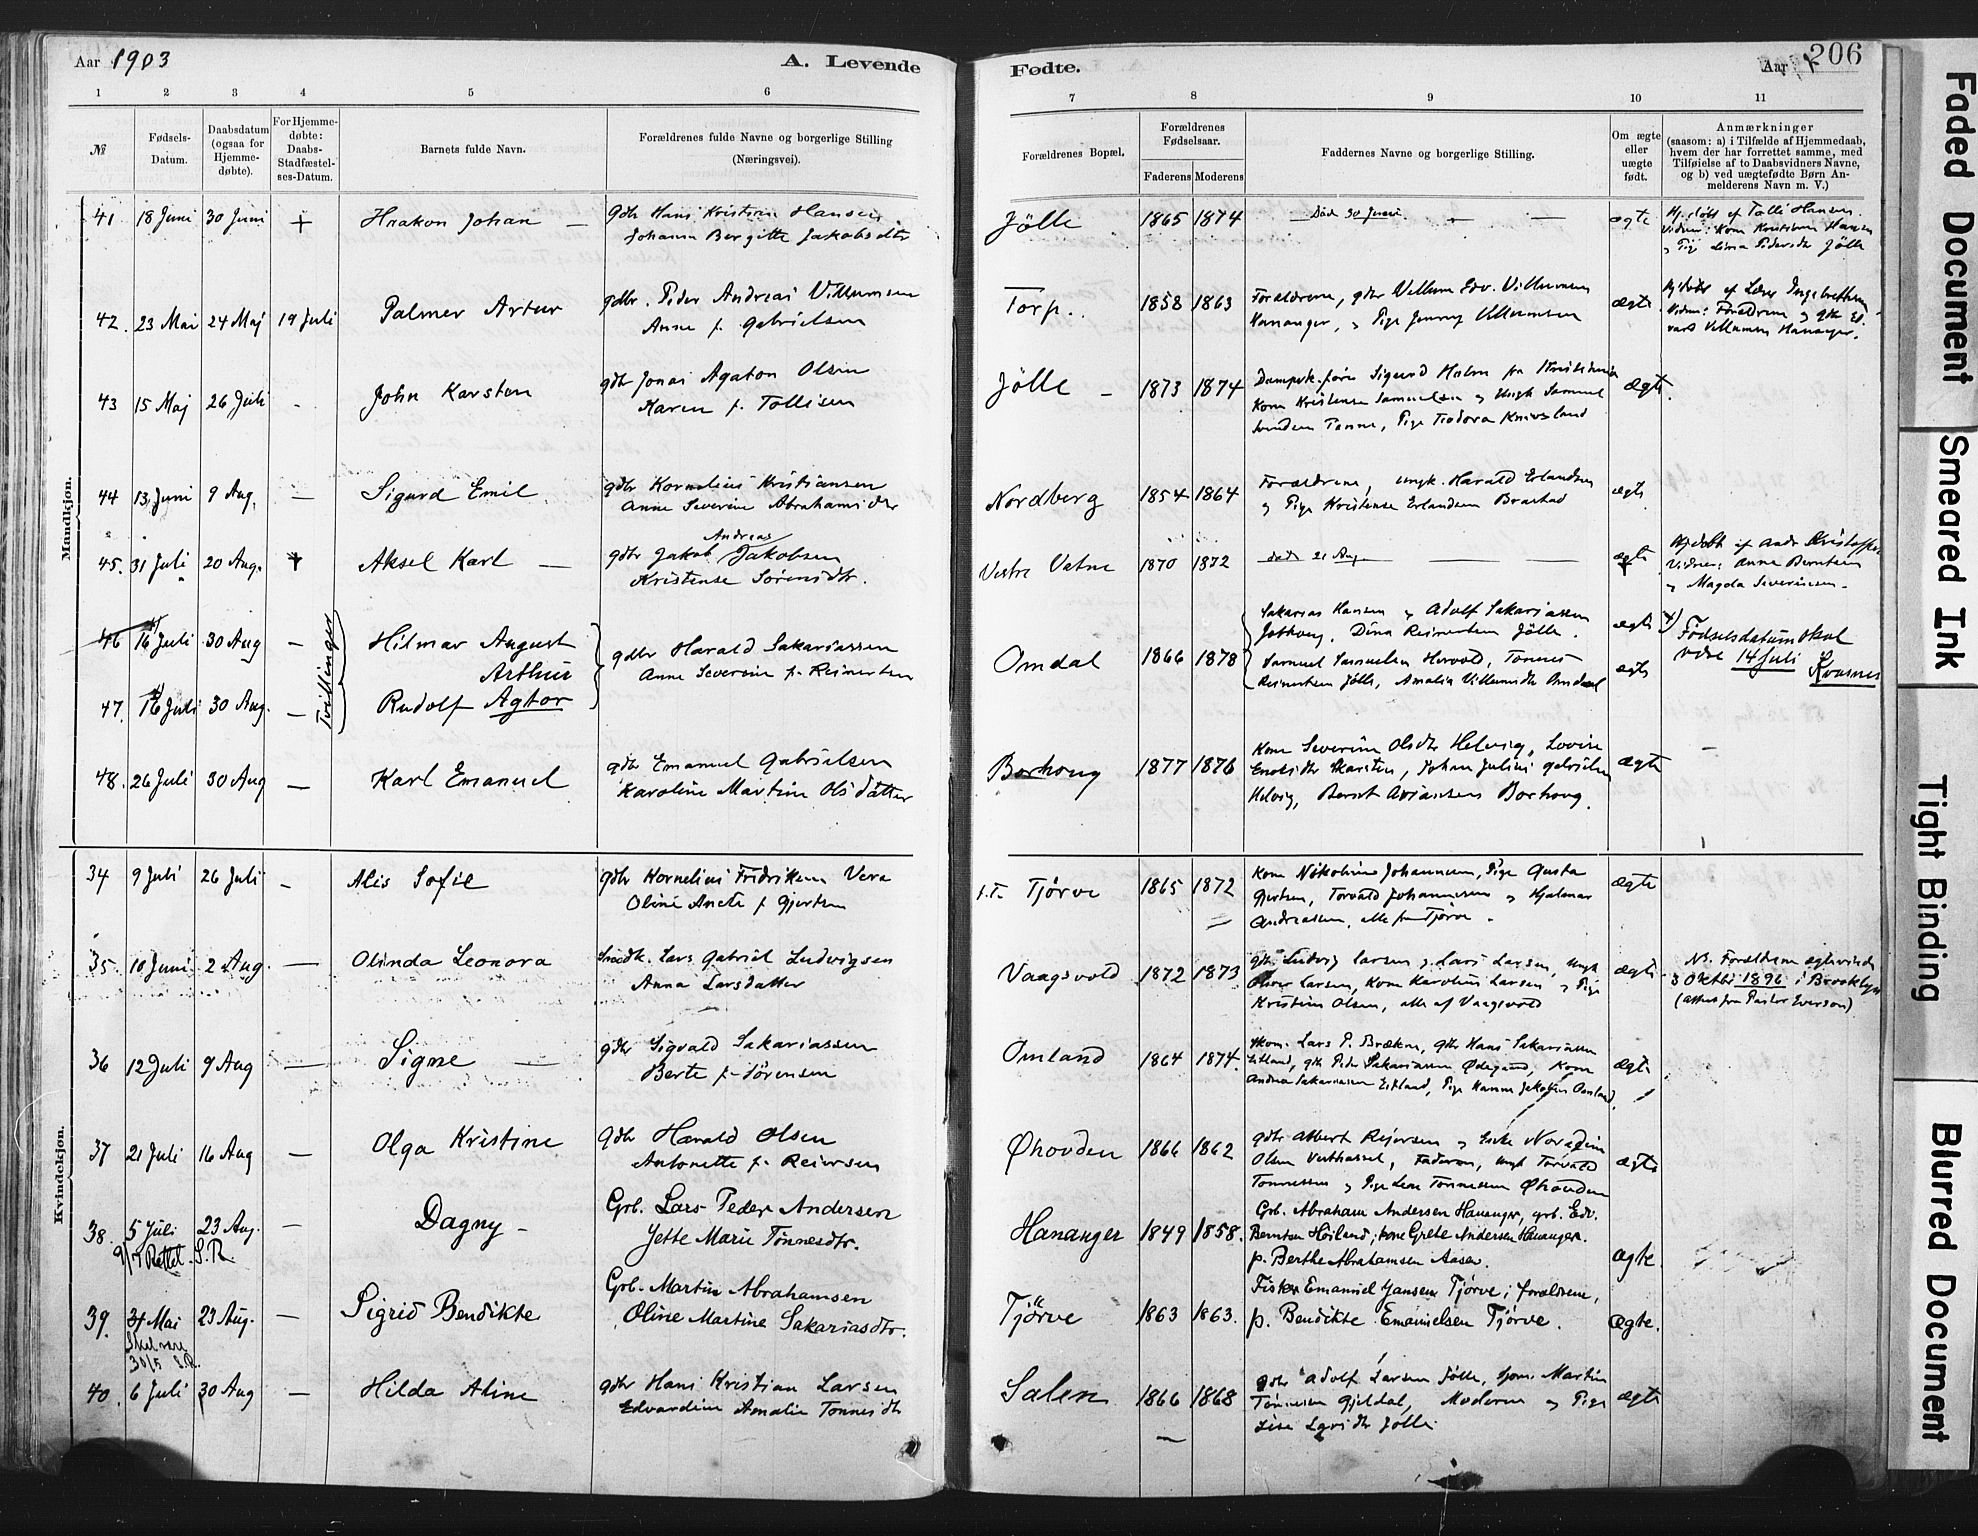 Aar 1903
A. Levende
Fødte.
Aar
206
1 2 3 4 5 6 7 8 9 10 11
№
Fødsels-
Datum.
Daabsdatum
(ogsaa for
Hjemme-
døbte).
For Hjemme-
døbte:
Daabs-
Stadfæstel-
ses-Datum.
Barnets fulde Navn.
Forældrenes fulde Navne og borgerlige Stilling
(Næringsvei).
Forældrenes Bopæl.
Forældrenes
Fødselsaar.
Faderens Moderens
Faddernes Navne og borgerlige Stilling.
Om ægte
eller
uægte
født.
Anmærkninger
(saasom: a) i Tilfælde af Hjemmedaab,
hvem der har forrettet samme, med
Tilføielse af to Daabsvidners Navne,
og b) ved uægtefødte Børn An-
melderens Navn m. V.)
Mandkjøn.
41. 18 Juni 30 Juni + Haakon Johan —
Gdbr Hans Kristian Hansen
Johanne Bergitte Jakobsdtr
Jölle 1865 1874
— Död 30 Juni — —
ægte
Hj.döbt af Tolli Hansen.
Vidner: Kone Kristine Hansen
42. 23 Mai 24 Maj 19 Juli Palmer Artur
gdbr. Peder Andreas Villumsen
Anne f. Gabrielsen
Torp. 1858 1863
Forældrene, gdbr Villum Edv. Villumsen
Hananger, Pige Jenny Villumsen
ægte
Vidner: Forældrene og gdbr Ed-
vart Villumsen Hananger.
43 15 Maj 26 Juli - John Karsten
gdbr Jonas Agaton Olsen
Karen f. Tollisen
Jölle — 1873 1874
Sigurd Holm fra Kristiania
Kone Kristense Samuelsen og Ungk Samuel
Pige Teodora Knivsland
ægte.
44 13 Juni 9 Aug. — Sigurd Emil
gdbr Kornelius Kristiansen
Anne Severine Abrahamsdtr
Nordberg 1854 1864
Forældrene, ungk. Harald Erlandsen
og Pige Kristense Erlandsen Brastad
ægte
45. 31 Juli 20 Aug. + Aksel Karl —
Andreas
gdbr Jakob Jakobsen
Kristense Sörensdtr.
Vestre Vatne 1870 1872
död 21 Aug — —
ægte
Vidner: Anna Berntsen
og Magda Severinsen.
46 16 Juli 30 Aug — Tvillinger Hilmar August
Arthur
gdbr Harald Sakariassen
Anne Severine f. Reinertsen
Omdal 1866 1878
Sakarias Hansen og Adolf Sakariassen
Dina Reinertsen Jölle.
Samuel Samuelsen Hervold, Tönnes
Reinertsen Jölle, Amalia Villumsdtr Omdal
ægte
ægte
Födselsdatum skal
være 14 Juli
Kvasnes
47. 16 Juli 30 Aug. — Rudolf Agtor
48. 26 Juli 30 Aug — Karl Emanuel
gdbr Emanuel Gabrielsen
Karoline Martine Olsdatter
Borhoug 1877 1876
Kone Severine Olsdtr Helvig, Lovise
Johan Julius Gabrielsen
Helvig, Bernt Borhoug.
ægte
Kvindekjøn.
34 9 Juli 26 Juli - Alis Sofie
gdbr Kornelius Fridriksen Vere
Oline f Gjertsen
Tjörve 1865 1872
Kone Nikoline Johannesen, Pige Gusta
Gjertsen, Torvald Johannesen og Hjalmar
Andreassen, alle fra Tjörve.
ægte
35. 10 Juni 2 Aug. — Olinda Leonora
Lars Gabriel Ludvigsen
Anna Larsdatter
Vaagsvold 1872 1873
gdbr Ludvig Larsen og Lars Larsen, ungk
Oliver Larsen, Kone Karoline Larsen og Pige
Kristine Olsen, alle af Vaagsvold
ægte
NB. Forældrene ægteviede
3 Oktbr 1896 i Brooklyn
(attest fra Pastor Everson)
36 12 Juli 9 Aug — Signe —
gdbr Sigvald Sakariassen
Berte f. Sörensen
Omland 1864 1874.
Lars P. Brækne, gdbr Hans Sakariassen
gdbr Peder Sakariassen Ödegaard, Kone
Andrea Sakariassen Eikland, Pige Hanne Jakobsen Omland.
ægte
37 21 Juli 16 Aug — Olga Kristine
Gdbr Harald Olsen
Antonette f. Reiersen
Øhovden 1866 1862
gdbr Albert Reiersen og Enke Noradine
Olsen Vesthassel, Faderen, ungk Torvald
Tönnessen og Pige Lene Tönnessen Øhovden
ægte
38. 5 Juli 23 Aug. — Dagny —
9/7 Rettet. S.R.
Grb. Lars Peder Andersen
Jette Marie Tönnesdtr.
Hananger 1849 1858.
Grb. Abraham Andersen Hananger, grb. Edv.
Berntsen Höiland, kone Grete Andersen Hananger.
p. Berthe Abrahamsen Aasen.
ægte.
39. 31 Mai 23 Aug. — Sigrid Bendikte
Skal være
30/5 S.R.
Grb. Martin Abrahamsen
Oline Martine Sakariasdtr.
Tjörve 1863 1863.
Fisker Emanuel Jansen Tjörve; forældrene,
p. Bendikte Emanuelsen Tjörve.
ægte.
40. 6 Juli 30 Aug — Hilda Aline
gdbr Hans Kristian Larsen
Edvardine Amalie Tönnesdtr
Salen 1866 1868
gdbr Adolf Larsen Jölle, Martin
Tönnesen Gjeldal, Moderen og Pige
Jölle
ægte
Faded Document
Smeared Ink
Tight Binding
Blurred Document